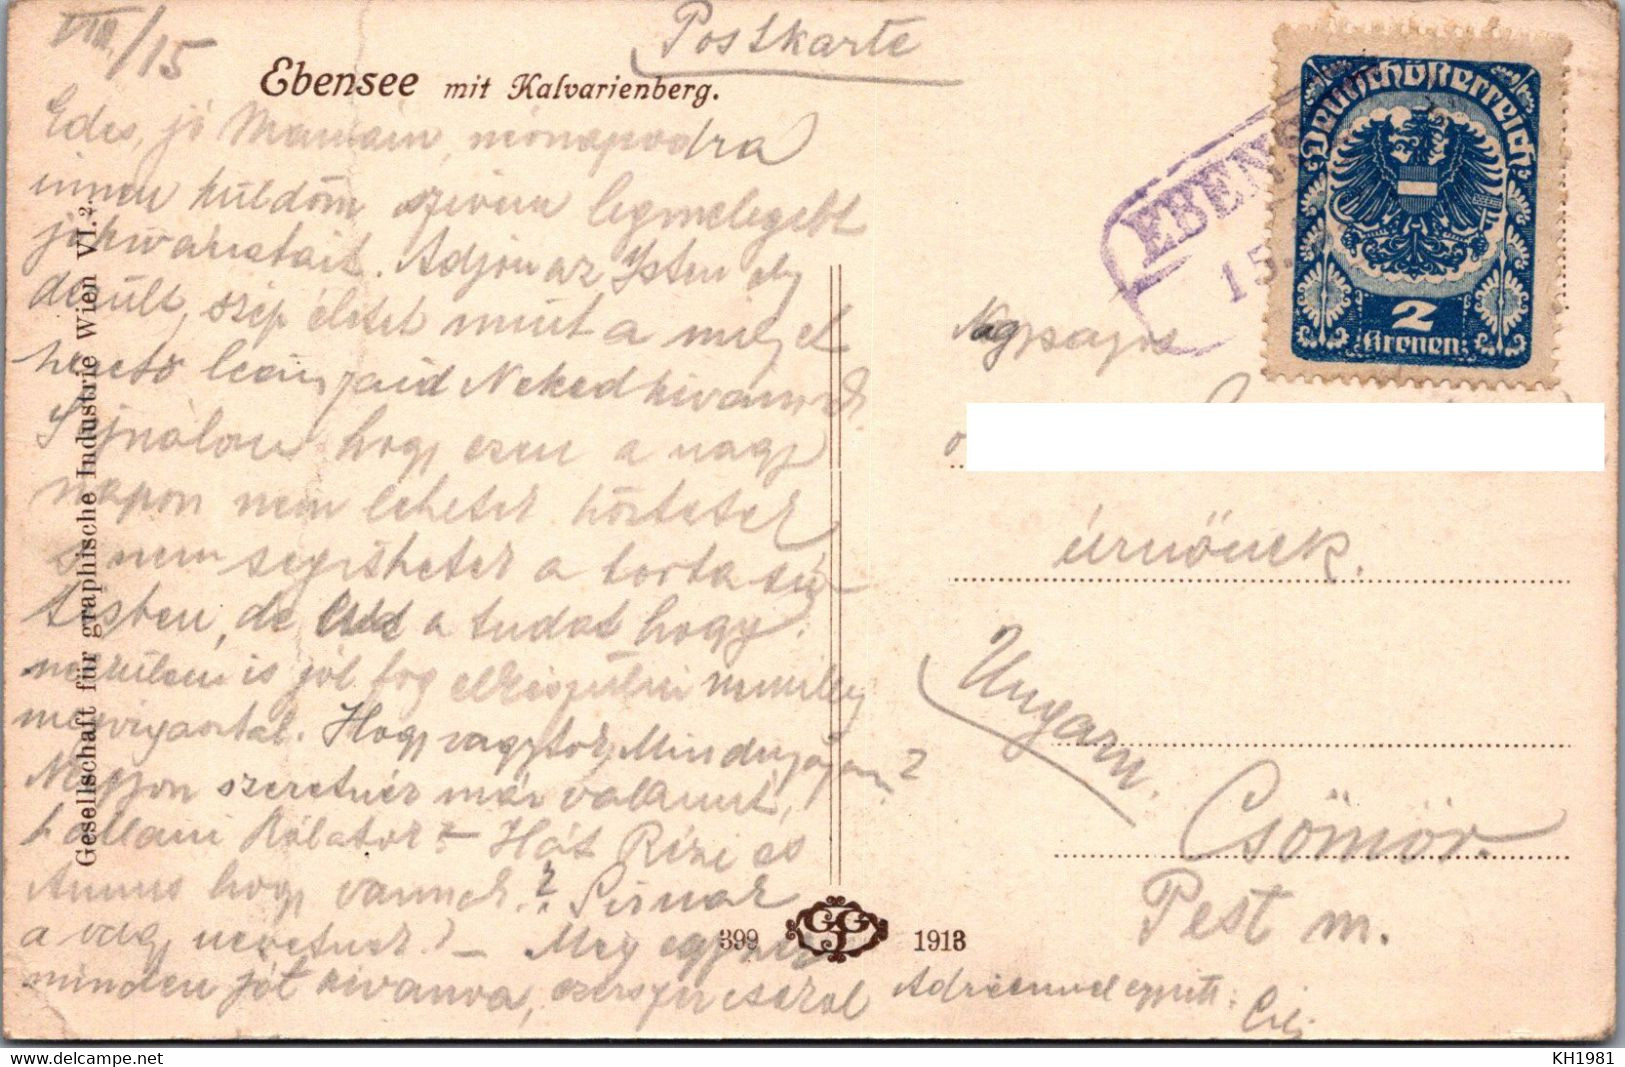 VIII/15
Postkarte
Ebensee mit Kalvarienberg.
Edes, jó Mamám, névnapodra
innen küldöm szivem legmelegebb
jókivánatait. Adjon az Isten oly
derült, szép életet mint a milyet
szerető leányaid Neked kivánnak.
Sajnálom hogy ezen a nagy
napon nem lehetek köztetek
s nem segithetek a torta sü-
tésben, de a tudat hogy
nélkülem is jól fog elkészülni némileg
megvigasztal. Hogy vagytok Mindnyájan?
Nagyon szeretnék már valamit
hallani Rólatok? Hát Rézi és
Annus hogy vannak? Sirnak
a vagy nevetnek? – Meg egyszer
minden jót kivánva, ezerszer csókol
Adriennel együtt: Cili
Gesellschaft für graphische Industrie Wien VI.2.
399 GGI 1913
EBENS
15.
Deutschösterreich
2
Kronen
Nagyságos
úrnőnek.
Ungarn.
Csömör.
Pest m.
KH1981